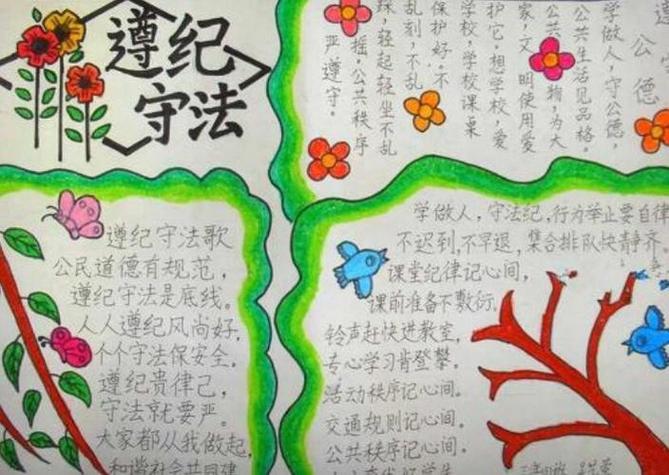 遵纪
守法
公德
学做人,守公德,
公共生活见品格。
公共物,为大
家,文明使用爱
护它,想学校,爱
学校,学校课桌
保护好,不
乱刻,不乱
踩,轻起轻坐不乱
摇,公共秩序
严遵守。
遵纪守法歌
公民道德有规范,
遵纪守法是底线。
人人遵纪风尚好,
个个守法保安全。
遵纪贵律己,
守法就要严。
大家都从我做起,
和谐社会共同建
学做人,守法纪,行为举止要自律
不迟到,不早退,集合排队快静齐
课堂纪律记心间,
课前准备不敷衍,
铃声赶快进教室,
专心学习肯登攀。
活动秩序记心间。
交通规则记心间。
公共秩序记心间。